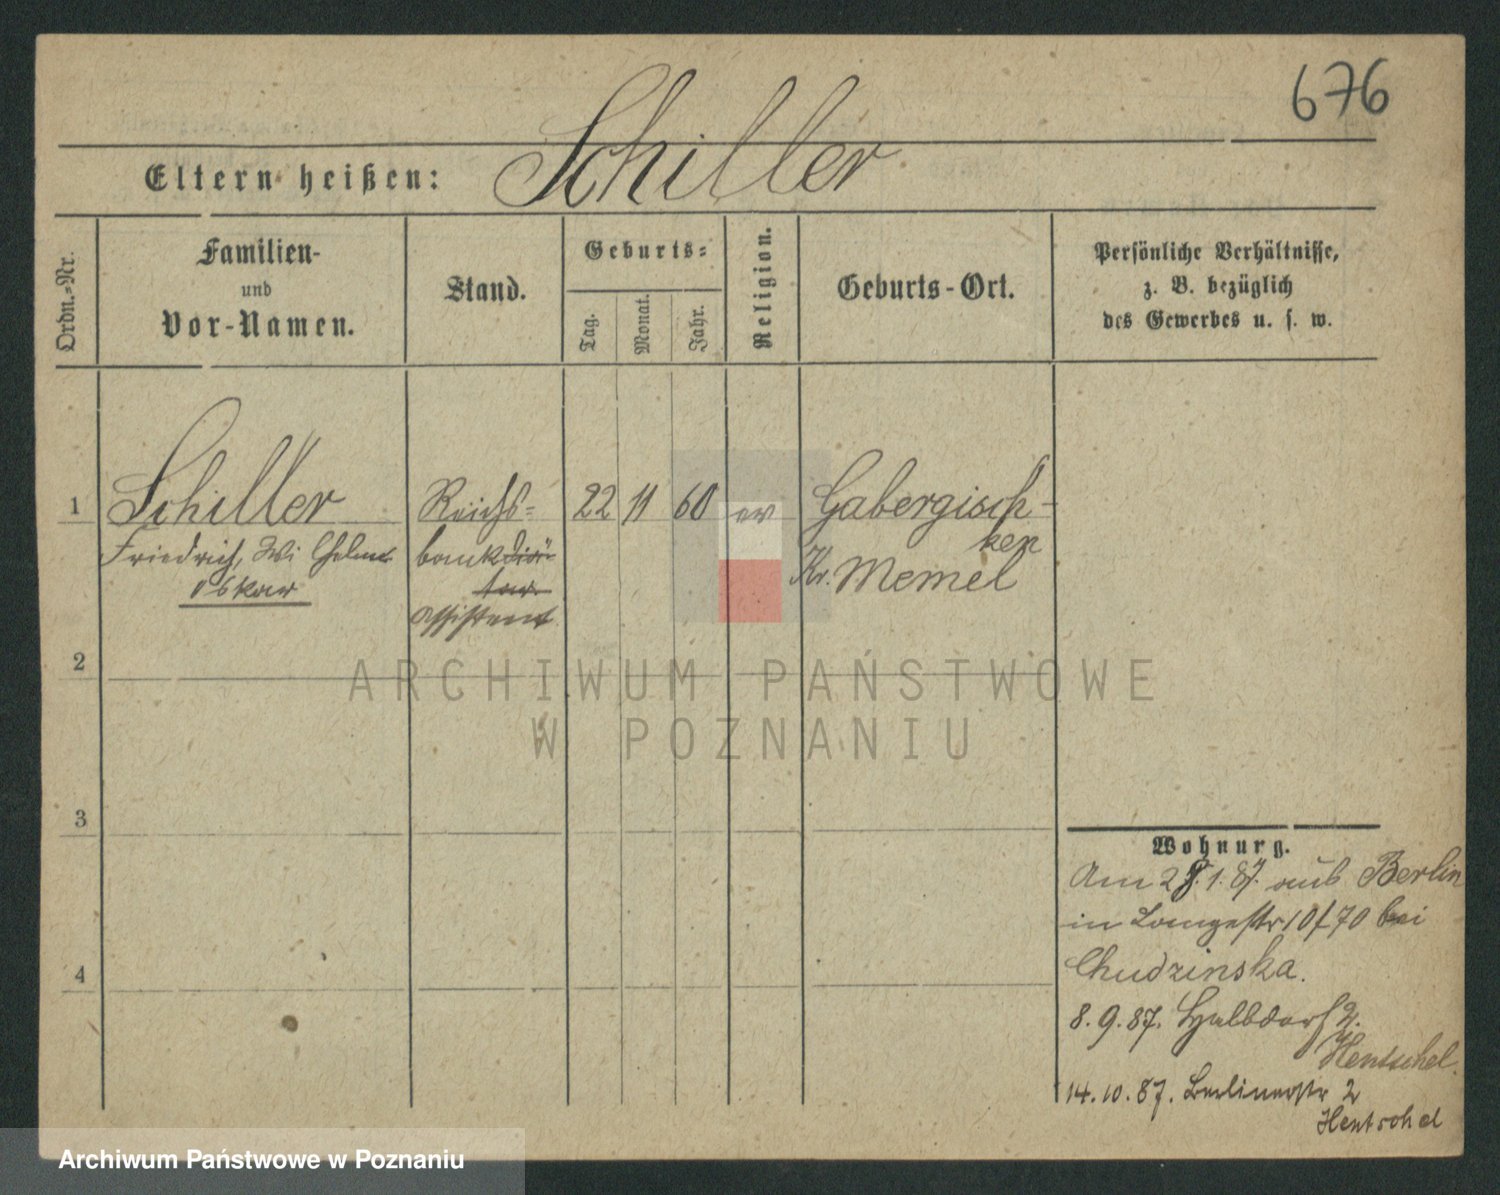 676
Eltern heißen: Schiller
Ordn.-Nr.
Familien-
und
Vor-Namen.
Stand.
Geburts-
Tag.
Monat.
Jahr.
Religion.
Geburts-Ort.
Persönliche Verhältnisse,
z. B. bezüglich
des Gewerbes u. s. w.
1 Schiller Reichs- 22 11 60 ev Gabergisch-
ken
Friedrich, Wilhelm bankdiä-
Oskar tar Kr. Memel
Assistent
2
3
4
Wohnung.
Am 28.1.87. aus Berlin
in Langestr 10/70 bei
Chudzinska.
8.9.87. Halbdorf 2.
Hentschel.
14.10.87. Berlinerstr 2
Hentschel
ARCHIWUM PAŃSTWOWE
W POZNANIU
Archiwum Państwowe w Poznaniu